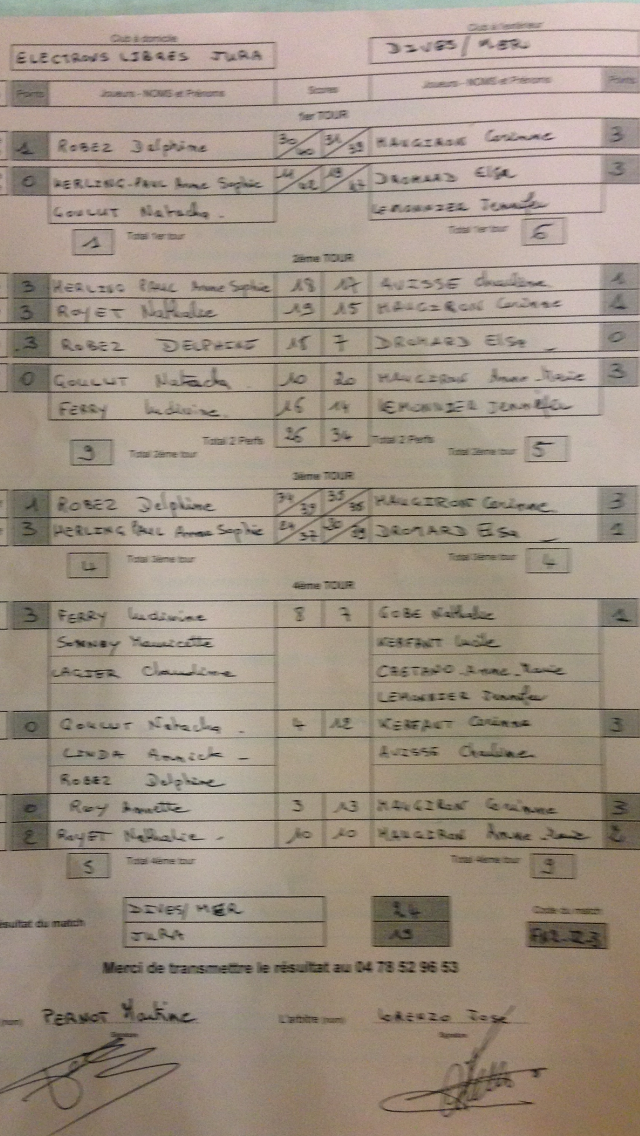 Club à domicile Club à l'extérieur
ELECTRONS LIBRES JURA DIVES/MER
Points Joueurs - NOMS et Prénoms Scores Joueurs - NOMS et Prénoms Points
1er TOUR
1 ROBEZ Delphine 30/40 31/39 MAUGIRON Corinne 3
0 HERLING-PAUL Anne Sophie DROMARD Elsa 3
GOULUT Natacha. LEMONNIER Jennifer
1 Total 1er tour Total 1er tour 6
2ème TOUR
3 HERLING PAUL Anne Sophie 18 17 AVISSE Charlène 1
3 ROYET Nathalie 19 15 MAUGIRON Corinne 1
3 ROBEZ DELPHINE 15 7 DROMARD Elsa 0
0 GOULUT Natacha. 10 20 MAUGIRON Anne-Marie 3
FERRY Ludivine. 16 14 LEMONNIER Jennifer
Total 2 Perfs 26 34 Total 2 Perfs
9 Total 2ème tour Total 2ème tour 5
3ème TOUR
1 ROBEZ Delphine MAUGIRON Corinne 3
3 HERLING PAUL Anne Sophie DROMARD Elsa 1
4 Total 3ème tour Total 3ème tour 4
4ème TOUR
3 FERRY Ludivine 8 7 GOBE Nathalie 1
SONNEY Mauricette KERFANT Lucile
LAGIER Claudine CAETANO Anne-Marie
LEMONNIER Jennifer
0 GOULUT Natacha. 4 12 KERFANT Corinne 3
LINDA Annick AVISSE Charlène
ROBEZ Delphine
0 ROY Annette 3 13 MAUGIRON Corinne 3
2 ROYET Nathalie. 10 10 MAUGIRON Anne-Marie 2
5 Total 4ème tour Total 4ème tour 9
DIVES/MER 24 Code du match
Résultat du match
JURA 19
Merci de transmettre le résultat au 04 78 52 96 53
(nom) PERNOT Martine L'arbitre (nom) LORENZO José
Signature Signature